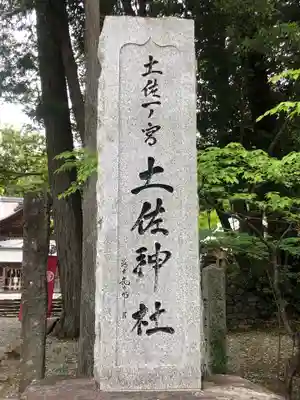 土佐一ノ宮
土佐神社